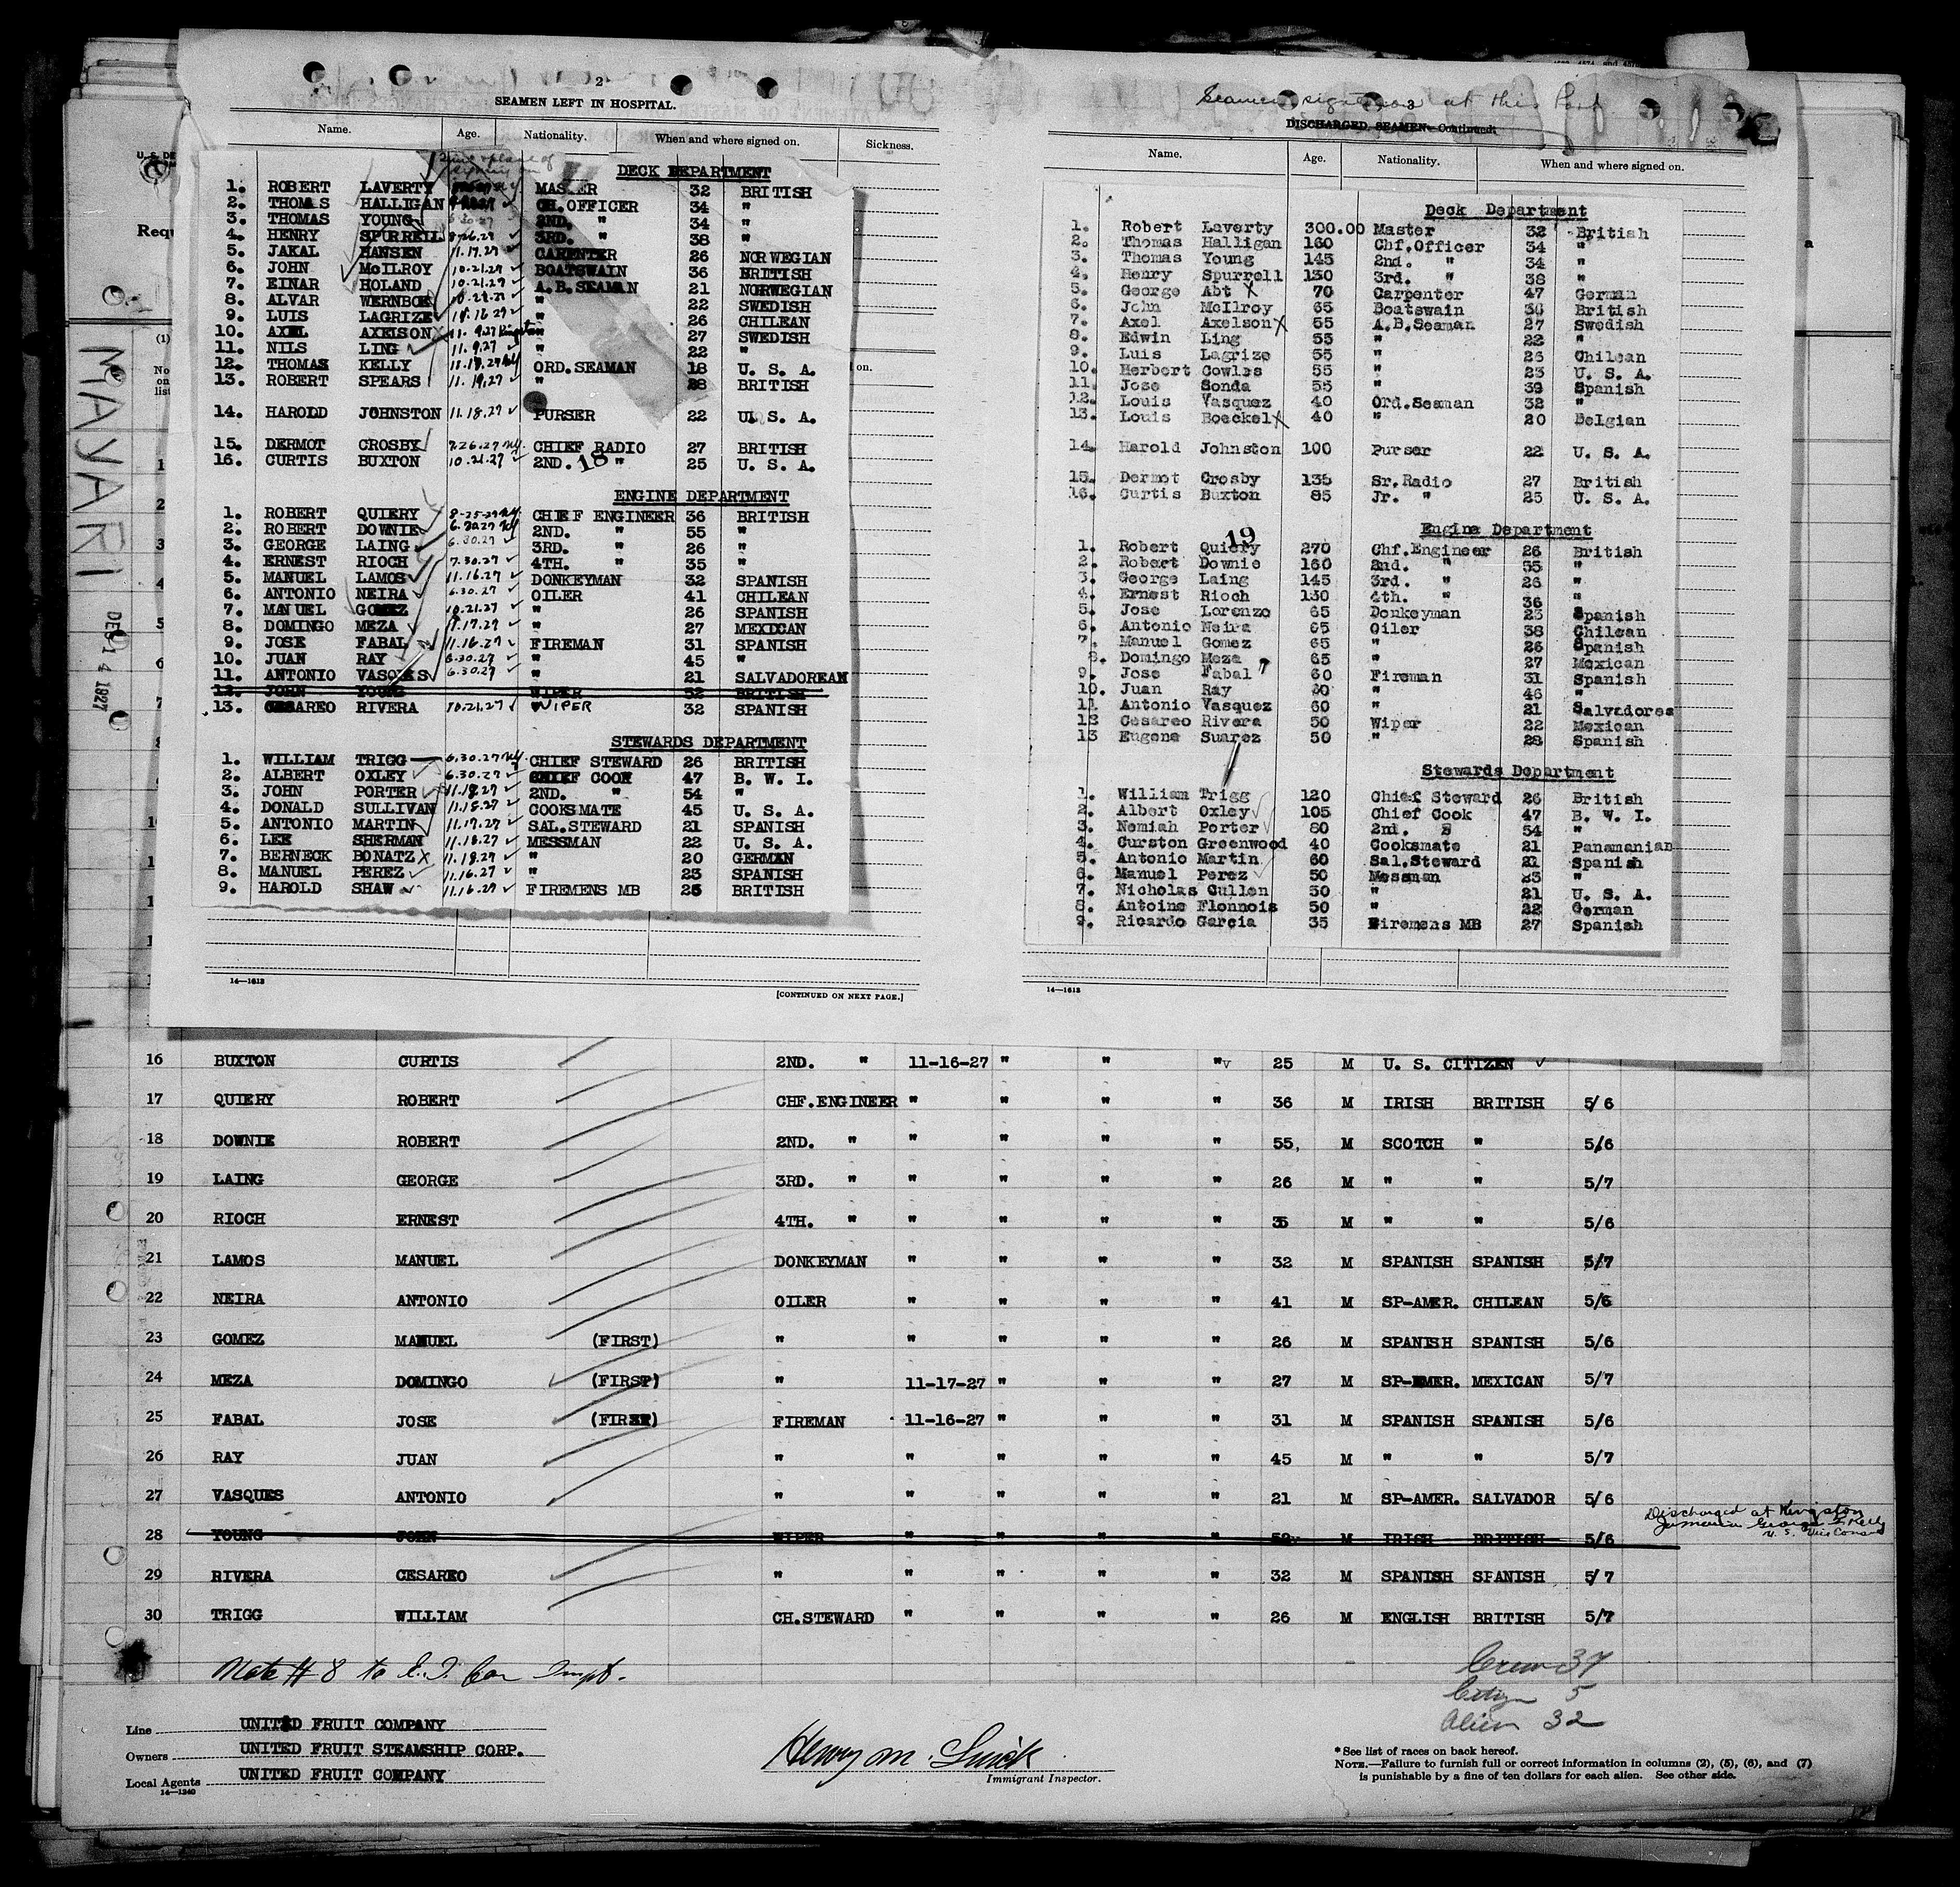 2
SEAMEN LEFT IN HOSPITAL.
Name. Age. Nationality. When and where signed on. Sickness.
DECK DEPARTMENT
1. ROBERT LAVERTY MASTER 32 BRITISH
2. THOMAS HALLIGAN CH.OFFICER 34 "
3. THOMAS YOUNG 6.30.27 2ND. " 34 "
4. HENRY SPURRELL 8-26.27 3RD. " 38 "
5. JAKAL HANSEN 11.17.27 CARPENTER 26 NORWEGIAN
6. JOHN McILROY 10.21.27 BOATSWAIN 36 BRITISH
7. EINAR HOLAND 10.21.27 A.B.SEAMAN 21 NORWEGIAN
8. ALVAR WERNBOE 10.21.27 " 22 SWEDISH
9. LUIS LAGRIZE 11.16.27 " 26 CHILEAN
10. AXEL AXELSON X 11.9.27 Kingston " 27 SWEDISH
11. NILS LING 11.9.27 " 22 "
12. THOMAS KELLY 11.18.27 ORD.SEAMAN 18 U. S. A.
13. ROBERT SPEARS 11.19.27 " 28 BRITISH
14. HAROLD JOHNSTON 11.18.27 PURSER 22 U. S. A.
15. DERMOT CROSBY 7.26.27 CHIEF RADIO 27 BRITISH
16. CURTIS BUXTON 10.21.27 2ND. " 25 U. S. A.
18
ENGINE DEPARTMENT
1. ROBERT QUIERY 8-25-27 CHIEF ENGINEER 36 BRITISH
2. ROBERT DOWNIE 6.30.27 2ND. " 55 "
3. GEORGE LAING 6.30.27 3RD. " 26 "
4. ERNEST RIOCH 7.30.27 4TH. " 35 "
5. MANUEL LAMOS 11.16.27 DONKEYMAN 32 SPANISH
6. ANTONIO NEIRA 6.30.27 OILER 41 CHILEAN
7. MANUEL GOMEZ 10.21.27 " 26 SPANISH
8. DOMINGO MEZA 11.17.27 " 27 MEXICAN
9. JOSE FABAL 11.16.27 FIREMAN 31 SPANISH
10. JUAN RAY 6.30.27 " 45 "
11. ANTONIO VASQUES 6.30.27 " 21 SALVADOREAN
12. JOHN YOUNG WIPER 52 BRITISH
13. CESAREO RIVERA 10.21.27 WIPER 32 SPANISH
STEWARDS DEPARTMENT
1. WILLIAM TRIGG 6.30.27 CHIEF STEWARD 26 BRITISH
2. ALBERT OXLEY 6.30.27 CHIEF COOK 47 B. W. I.
3. JOHN PORTER 11.18.27 2ND. " 54 "
4. DONALD SULLIVAN 11.18.27 COOKSMATE 45 U. S. A.
5. ANTONIO MARTIN 11.17.27 SAL.STEWARD 21 SPANISH
6. LEE SHERMAN 11.18.27 MESSMAN 22 U. S. A.
7. BERNECK BONATZ X 11.18.27 " 20 GERMAN
8. MANUEL PEREZ 11.16.27 " 23 SPANISH
9. HAROLD SHAW 11.16.27 FIREMENS MB 25 BRITISH
14—1613
[CONTINUED ON NEXT PAGE.]
Seamen signed on at this Port
3
DISCHARGED SEAMEN—Continued.
Name. Age. Nationality. When and where signed on.
Deck Department
1. Robert Laverty 300.00 Master 32 British
2. Thomas Halligan 160 Chf.Officer 34 "
3. Thomas Young 145 2nd. " 34 "
4. Henry Spurrell 130 3rd. " 38 "
5. George Abt X 70 Carpenter 47 German
6. John McIlroy 65 Boatswain 36 British
7. Axel Axelson X 55 A.B.Seaman 27 Swedish
8. Edwin Ling 55 " 22 "
9. Luis Lagrize 55 " 26 Chilean
10. Herbert Cowles 55 " 23 U. S. A.
11. Jose Sonda 55 " 39 Spanish
12. Louis Vasquez 40 Ord.Seaman 32 "
13. Louis Boeckel X 40 " 20 Belgian
14. Harold Johnston 100 Purser 22 U. S. A.
15. Dermot Crosby 135 Sr.Radio 27 British
16. Curtis Buxton 85 Jr. " 25 U. S. A.
19
Engine Department
1. Robert Quiery 270 Chf.Engineer 26 British
2. Robert Downie 160 2nd. " 55 "
3. George Laing 145 3rd. " 26 "
4. Ernest Rioch 130 4th. " 36 "
5. Jose Lorenzo 65 Donkeyman 23 Spanish
6. Antonio Neira 65 Oiler 38 Chilean
7. Manuel Gomez 65 " 26 Spanish
8. Domingo Meza 65 " 27 Mexican
9. Jose Fabal 60 Fireman 31 Spanish
10. Juan Ray " 46 "
11 Antonio Vasquez 60 " 21 Salvadores
12 Cesareo Rivera 50 Wiper 22 Mexican
13 Eugene Suarez 50 " 28 Spanish
Stewards Department
1. William Trigg 120 Chief Steward 26 British
2. Albert Oxley 105 Chief Cook 47 B. W. I.
3. Nemiah Porter 80 2nd. 54 "
4. Curston Greenwood 40 Cooksmate 21 Panamanian
5. Antonio Martin 60 Sal.Steward 21 Spanish
6. Manuel Perez 50 Messman 23 "
7. Nicholas Cullen 50 " 21 U. S. A.
8. Antoine Flonnois 50 " 22 German
9. Ricardo Garcia 35 Firemens MB 27 Spanish
14—1613
MAYARI
DEC 14 1927
16 BUXTON CURTIS 2ND. " 11-16-27 " " " 25 M U. S. CITIZEN
17 QUIERY ROBERT CHF.ENGINEER " " " " 36 M IRISH BRITISH 5/6
18 DOWNIE ROBERT 2ND. " " " " " 55, M SCOTCH " 5/6
19 LAING GEORGE 3RD. " " " " " 26 M " " 5/7
20 RIOCH ERNEST 4TH. " " " " " 35 M " " 5/6
21 LAMOS MANUEL DONKEYMAN " " " " 32 M SPANISH SPANISH 5/7
22 NEIRA ANTONIO OILER " " " " 41 M SP-AMER. CHILEAN 5/6
23 GOMEZ MANUEL (FIRST) " " " " " 26 M SPANISH SPANISH 5/6
24 MEZA DOMINGO (FIRST) " 11-17-27 " " " 27 M SP-AMER. MEXICAN 5/7
25 FABAL JOSE (FIRST) FIREMAN 11-16-27 " " " 31 M SPANISH SPANISH 5/6
26 RAY JUAN " " " " " 45 M " " 5/7
27 VASQUES ANTONIO " " " " " 21 M SP-AMER. SALVADOR 5/6
28 YOUNG JOHN WIPER " " " " 52 M IRISH BRITISH 5/6 Discharged at Kingston Jamaica George Kelly U. S. Vice Consul
29 RIVERA CESAREO " " " " " 32 M SPANISH SPANISH 5/7
30 TRIGG WILLIAM CH.STEWARD " " " " 26 M ENGLISH BRITISH 5/7
Crew 37
5
Alien 32
Line UNITED FRUIT COMPANY
Owners UNITED FRUIT STEAMSHIP CORP.
Local Agents UNITED FRUIT COMPANY
14—1240
Immigrant Inspector.
* See list of races on back hereof.
NOTE.—Failure to furnish full or correct information in columns (2), (5), (6), and (7)
is punishable by a fine of ten dollars for each alien. See other side.